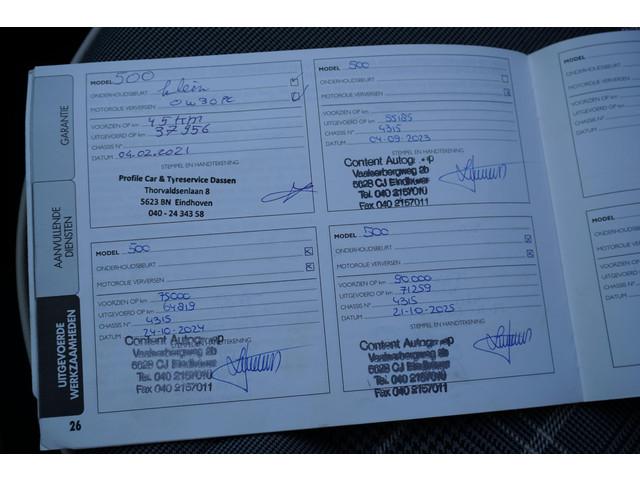 GARANTIE
AANVULLENDE
DIENSTEN
UITGEVOERDE
WERKZAAMHEDEN
26
MODEL 500
ONDERHOUDSBEURT klein
MOTOROLIE VERVERSEN 0w30 FE
VOORZIEN OP km 45 tkm
UITGEVOERD OP km 37956
CHASSIS N°
DATUM 04.02.2021
STEMPEL EN HANDTEKENING
Profile Car & Tyreservice Dassen
Thorvaldsenlaan 8
5623 BN Eindhoven
040 - 24 343 58
MODEL 500
ONDERHOUDSBEURT
MOTOROLIE VERVERSEN
VOORZIEN OP km
UITGEVOERD OP km 55185
CHASSIS N° 4315
DATUM 04-09-2023
STEMPEL EN HANDTEKENING
Content Autogroep
Vaalserbergweg 2b
5628 CJ Eindhoven
Tel. 040 2157010
Fax 040 2157011
MODEL 500
ONDERHOUDSBEURT
MOTOROLIE VERVERSEN
VOORZIEN OP km 75000
UITGEVOERD OP km 64819
CHASSIS N° 4315
DATUM 24-10-2024
HANDTEKENING
Content Autogroep
Vaalserbergweg 2b
5628 CJ Eindhoven
Tel. 040 2157010
Fax 040 2157011
MODEL 500
ONDERHOUDSBEURT
MOTOROLIE VERVERSEN
VOORZIEN OP km 90.000
UITGEVOERD OP km 71259
CHASSIS N° 4315
DATUM 21-10-2025
STEMPEL EN HANDTEKENING
Content Autogroep
Vaalserbergweg 2b
5628 CJ Eindhoven
Tel. 040 2157010
Fax 040 2157011
MODEL
MODEL